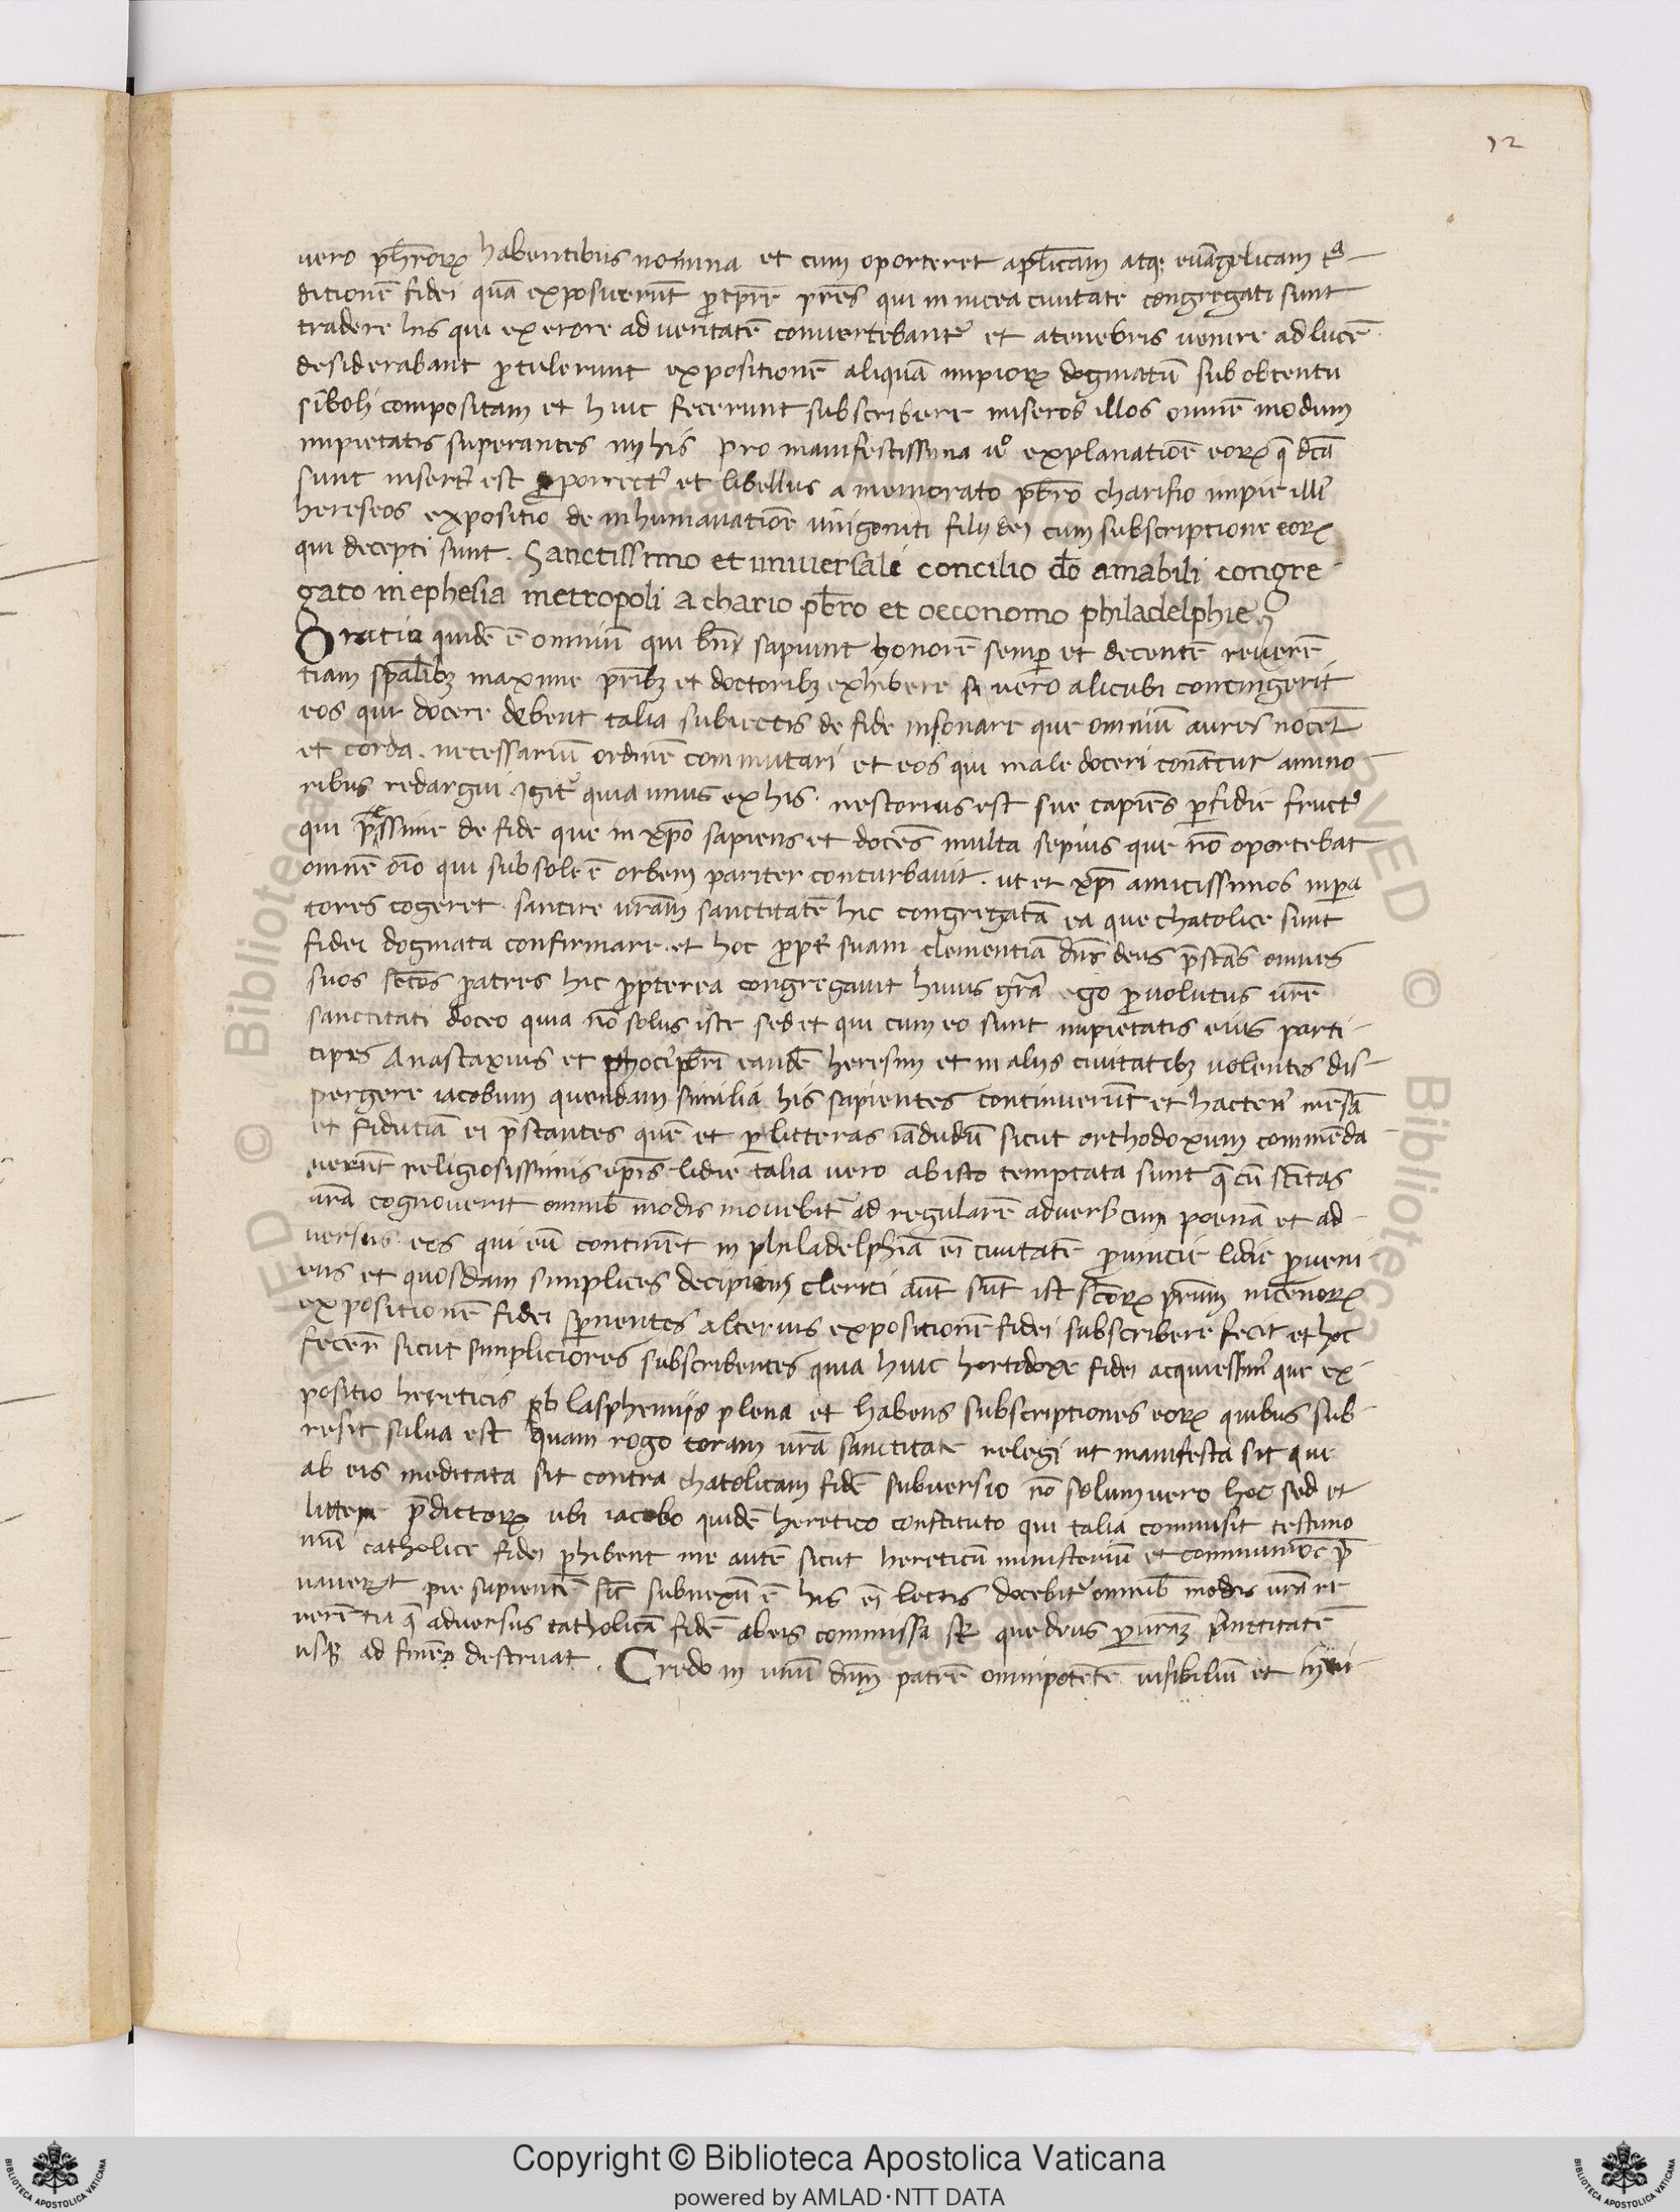 12
vero pb̄rorꝝ habentibus nomina et cum oporteret apl̄icam atqꝫ euāgelicam tᵃ-
ditionē fidei quā exposuerūt pr̄es qui in nicea ciuitate congregati sunt
tradere his qui ex erore ad ueritatē conuertebantꝰ et a tenebris uenire ad lucē
desiderabant ꝓtulerunt expositionē aliquā impiorꝝ dogmatū sub obtentu
siboli compositam et huic fecerunt subscribere miseros illos omnē modum
impietatis superantes in his pro manifestissima uº explanatiōe eorꝝ q̄ dc̄a
sunt insertꝰ est porrectꝰ et libellus a memorato pb̄ro charisio impie illiꝰ
hereseos expositio de inhumanatiōe unigeniti filij dei cum subscriptione eorꝝ
qui decepti sunt. Sanctissimo et uniuersali concilio dō amabili congre-
gato in ephesia metropoli a chario pb̄ro et oeconomo philadelphie
Oratio quidē ē omniū qui bn̄ sapiunt honorē semꝑ et decentē reuerē
tiam sp̄alibꝫ maxime pr̄ibꝫ et doctoribꝫ exhibere si uero alicubi contingerit
eos qui docere debent talia subiectis de fide insonare que omniū aures nocēt
et corda. necessariū ordinē commutari et eos qui male doceri conātur a mino
ribus redargui. Igitꝰ quia unus ex his. nestorius est sue capiēs ꝑfidie fructꝰ
qui pessime de fide que in xp̄o sapiens et docēs multa sepius que nō oportebat
omnē oīo qui sub sole ē orbem pariter conturbauit. ut et xp̄i amicissimos inpera
tores cogeret. sancire ur̄am sanctitatē hic congregatā ea que chatolice sunt
fidei dogmata confirmare. et hoc ꝓptꝰ suam clementiā dn̄s deus p̄stās omnes
suos sc̄tos patres hic ꝓpterea congregauit huius gr̄a ego ꝓuolutus ur̄e
sanctitati doceo quia nō solus iste sed et qui cum eo sunt impietatis eius parti-
cipes Anastaxius et phociꝰ pb̄ri eandē heresim et in alijs ciuitatibꝫ uolentes dis-
pergere iacobum quendam similia his sapientes continuerūt et hactenꝰ mēsā
et fiduciā ei p̄stantes quē et ꝑ litteras iādudū sicut orthodoxum commēda
uerūt religiosissimis ep̄is lidie talia uero ab isto temptata sunt q̄ cū sc̄itas
ur̄a cognouerit omnib̄ modis mouebitꝰ ad regularē aduers̄ eum poenā et ad-
uersus eos qui eū continēt in philadelphiā en̄ ciuitatē ꝓuincie lidie ꝑueni-
ens et quosdam simplices decipiens clerici aūt sūt ist sc̄orꝝ pr̄um nicenorꝝ
expositionē fidei spernentes alterius expositionē fidei subscribere fecit et hoc
fecer̄ sicut simpliciores subscribentes quia huic hortodoxe fidei acquiessunt que ex-
positio hereticis blasphemijs plena et habens subscriptiones eorꝝ quibus sub-
resit salua est quam rogo coram ur̄a sanctitate relegi ut manifesta sit que
ab eis meditata sit contra chatolicam fidē subuersio nō solum uero hoc sed et
littere p̄dictorꝝ ubi iacobo quidē heretico constituto qui talia commisit testimo
niū catholice fidei ꝑhibent me autē sicut hereticū ministeriū et communiōe pͥ
uauerūt pie sapientē sic̄ subnexū ē his en̄ lectis docebitꝰ omnib̄ modis ur̄a re
uerētia q̄ aduersus catholicā fidē ab eis commissa st̄ que deus ꝑ ur̄am sanctitatē
usqꝫ ad finē destruat. Credo in unū dm̄ patrē omnipotētē uisibiliū et inui-
Copyright © Biblioteca Apostolica Vaticana
powered by AMLAD·NTT DATA